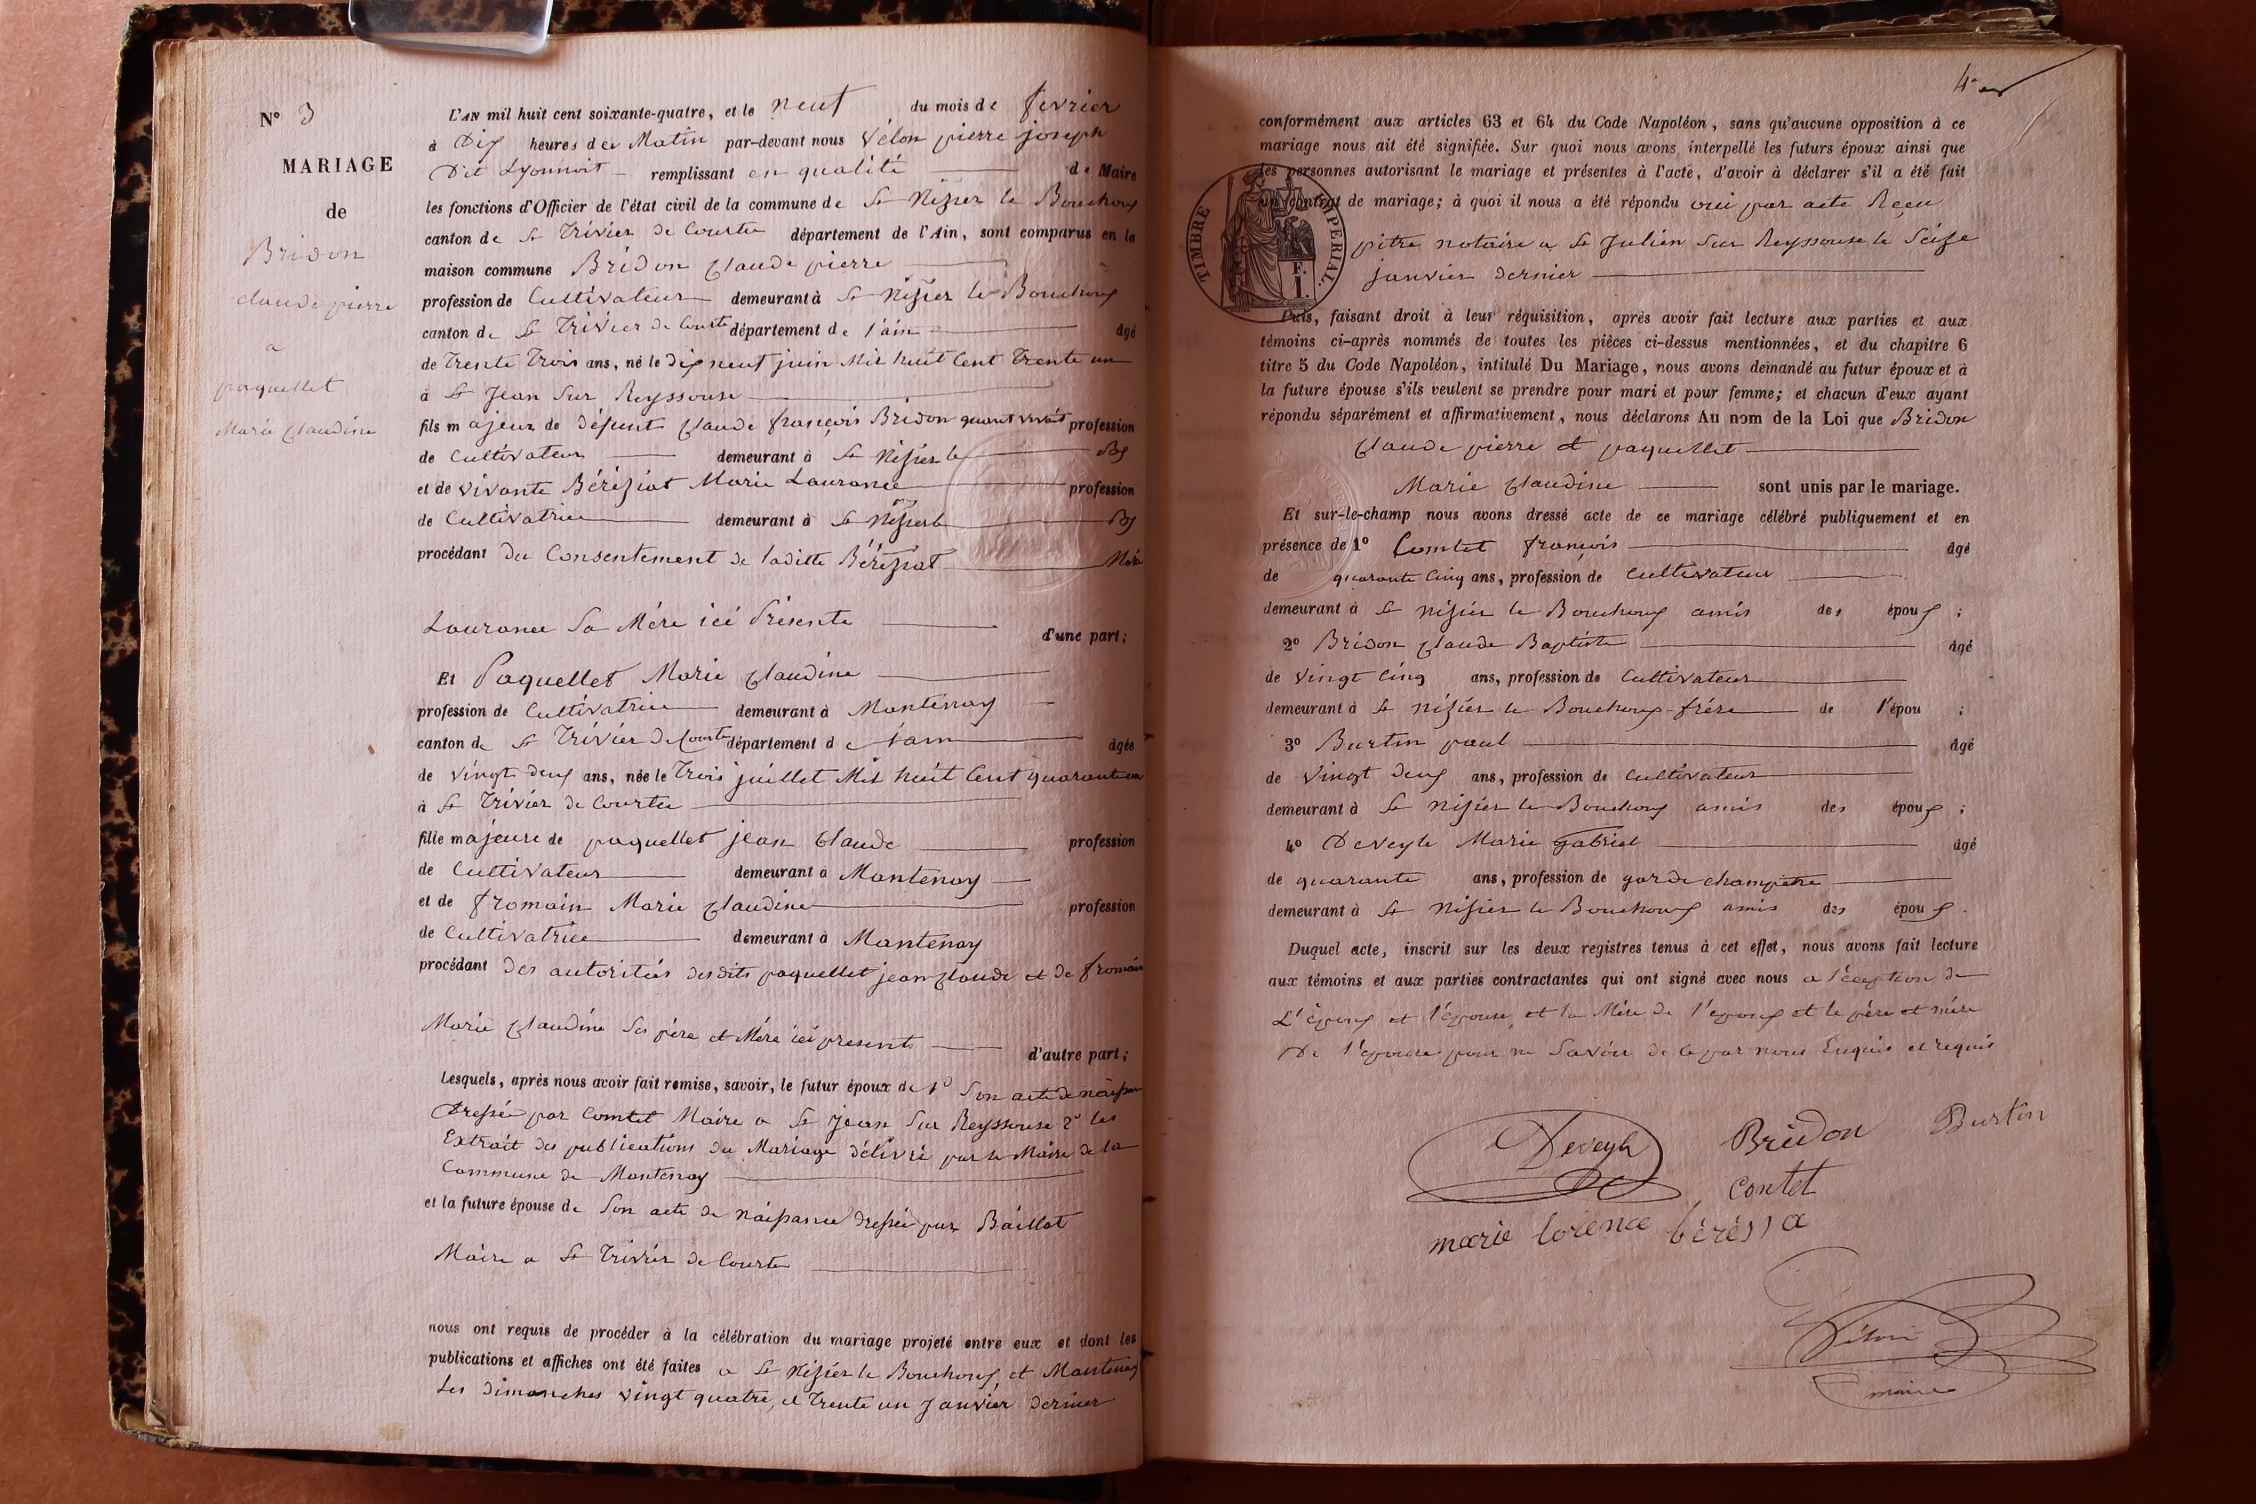 N° 3
MARIAGE
de
Bridon
claude pierre
a
paquellet
Marie Claudine
L'AN mil huit cent soixante-quatre, et le neuf du mois de fevrier
à Dix heures de Matin par-devant nous Vélon pierre joseph
Dit Lyonnoit remplissant en qualité de Maire
les fonctions d'Officier de l'état civil de la commune de St Nizier le Bouchoux
canton de St Trivier de Courtes département de l'Ain, sont comparus en la
maison commune Bridon Claude pierre
profession de Cultivateur demeurant à St Nizier le Bouchoux
canton de St Trivier de Courte département de l'ain âgé
de Trente Trois ans, né le dix neuf juin Mil huit Cent Trente un
à St Jean Sur Reyssouse
fils majeur de défunt Claude françois Bridon quant vivait profession
de Cultivateur demeurant à St Nizier le Bx
et de vivante Béréziat Marie Laurance profession
de Cultivatrice demeurant à St Nizier le Bx
procédant du Consentement de laditte Béréziat Marie
Laurance Sa Mère ici Présente d'une part;
Et Paquellet Marie Claudine
profession de Cultivatrice demeurant à Mantenay
canton de St Trivier de Courte département de l'ain âgée
de vingt deux ans, née le Trois juillet Mil huit Cent quarante un
à St Trivier de Courtes
fille majeure de paquellet jean Claude profession
de Cultivateur demeurant à Mantenay
et de fromain Marie Claudine profession
de Cultivatrice demeurant à Mantenay
procédant des autorités desdits paquellet jean Claude et de fromain
Marie Claudine Ses père et Mère ici presents d'autre part;
Lesquels, après nous avoir fait remise, savoir, le futur époux de 1° Son acte de naissance
Dressée par Comtet Maire a St Jean Sur Reyssouse 2° les
Extrait des publications du Mariage délivré par le Maire de la
Commune de Mantenay
et la future épouse de Son acte de naissance dressée par Baillat
Maire a St Trivier de Courtes
nous ont requis de procéder à la célébration du mariage projeté entre eux et dont les
publications et affiches ont été faites a St Nizier le Bouchoux, et Mantenay
Les dimanches vingt quatre, et Trente un Janvier dernier
4
conformément aux articles 63 et 64 du Code Napoléon, sans qu'aucune opposition à ce
mariage nous ait été signifiée. Sur quoi nous avons interpellé les futurs époux ainsi que
les personnes autorisant le mariage et présentes à l'acte, d'avoir à déclarer s'il a été fait
un contrat de mariage; à quoi il nous a été répondu oui par acte Reçu
pitre notaire a St Julien Sur Reyssouse le Seize
janvier dernier
TIMBRE IMPERIAL.
F.
1.
Puis, faisant droit à leur réquisition, après avoir fait lecture aux parties et aux
témoins ci-après nommés de toutes les pièces ci-dessus mentionnées, et du chapitre 6
titre 5 du Code Napoléon, intitulé Du Mariage, nous avons demandé au futur époux et à
la future épouse s'ils veulent se prendre pour mari et pour femme; et chacun d'eux ayant
répondu séparément et affirmativement, nous déclarons Au nom de la Loi que Bridon
Claude pierre et paquellet
Marie Claudine sont unis par le mariage.
Et sur-le-champ nous avons dressé acte de ce mariage célébré publiquement et en
présence de 1° Comtet françois âgé
de quarante Cinq ans, profession de Cultivateur
demeurant à St Nizier le Bouchoux amis des époux ;
2° Bridon Claude Baptiste âgé
de Vingt Cinq ans, profession de Cultivateur
demeurant à St Nizier le Bouchoux frère de l'épou ;
3° Burtin paul âgé
de Vingt deux ans, profession de Cultivateur
demeurant à St Nizier le Bouchoux amis des époux ;
4° Deveyle Marie gabriel âgé
de quarante ans, profession de garde champêtre
demeurant à St Nizier le Bouchoux amis des époux .
Duquel acte, inscrit sur les deux registres tenus à cet effet, nous avons fait lecture
aux témoins et aux parties contractantes qui ont signé avec nous a l'éception de
L'époux et l'épouse, et la Mère de l'époux et le père et mère
De l'épouse pour ne Savoir de ce par nous Enquis et requis
Deveyle Bridon Burtin
contet
marie lorence béréssa
Vélon
maire